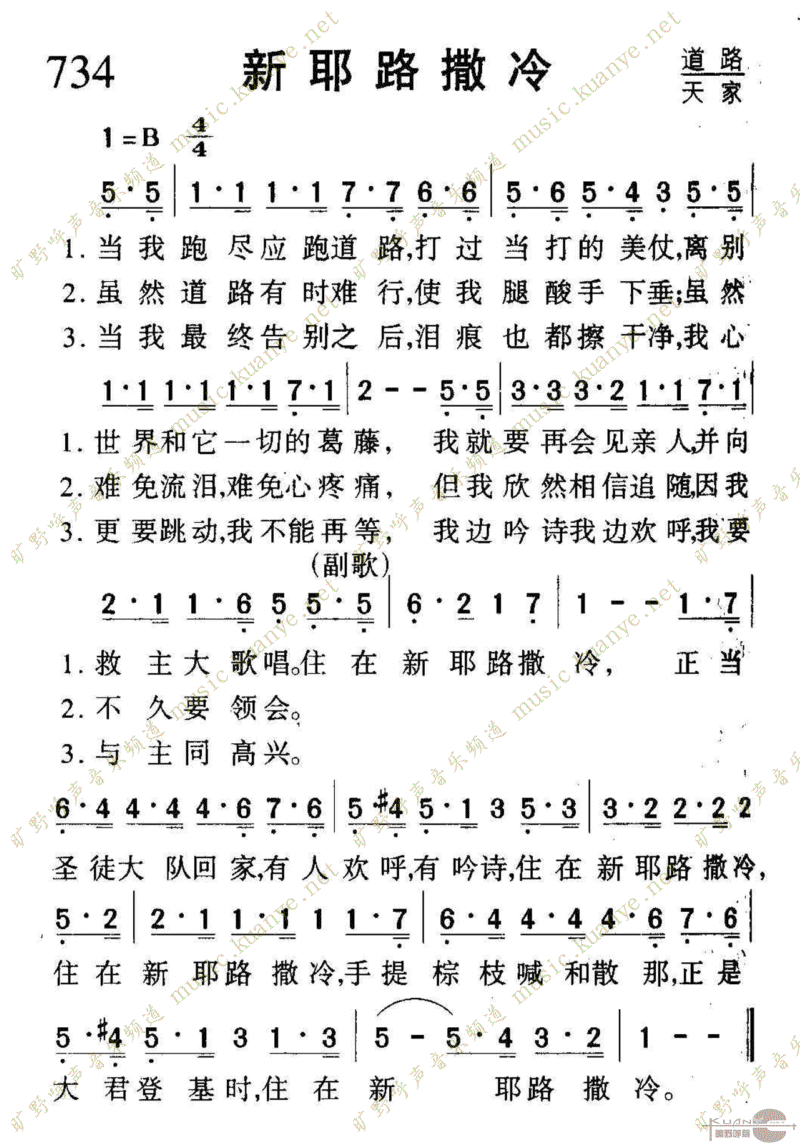 734 新耶路撒冷 道路
天家
1=B 4/4
5·5 | 1·1 1·1 7·7 6·6 | 5·6 5·4 3 5·5
1.当我跑尽应跑道路,打过当打的美仗,离别
2.虽然道路有时难行,使我腿酸手下垂;虽然
3.当我最终告别之后,泪痕也都擦干净,我心
1·1 1·1 1·1 7·1 | 2-- 5·5 | 3·3 3·2 1·1 7·1
1.世界和它一切的葛藤,我就要再会见亲人,并向
2.难免流泪,难免心疼痛,但我欣然相信追随,因我
3.更要跳动,我不能再等,我边吟诗我边欢呼,我要
(副歌)
2·1 1·6 5 5·5 | 6·2 1 7 | 1-- 1·7
1.救主大歌唱。住在新耶路撒冷,正当
2.不久要领会。
3.与主同高兴。
6·4 4·4 4·6 7·6 | 5·#4 5·1 3 5·3 | 3·2 2·2 2
圣徒大队回家,有人欢呼,有吟诗,住在新耶路撒冷,
5·2 | 2·1 1·1 1 1·7 | 6·4 4·4 4·6 7·6
住在新耶路撒冷,手提棕枝喊和散那,正是
5·#4 5·1 3 3·1 | 5-5·4 3·2 | 1-- ‖
大君登基时,住在新耶路撒冷。
旷野呼声音乐频道 music.kuanye.net
KUANYE
旷野呼声